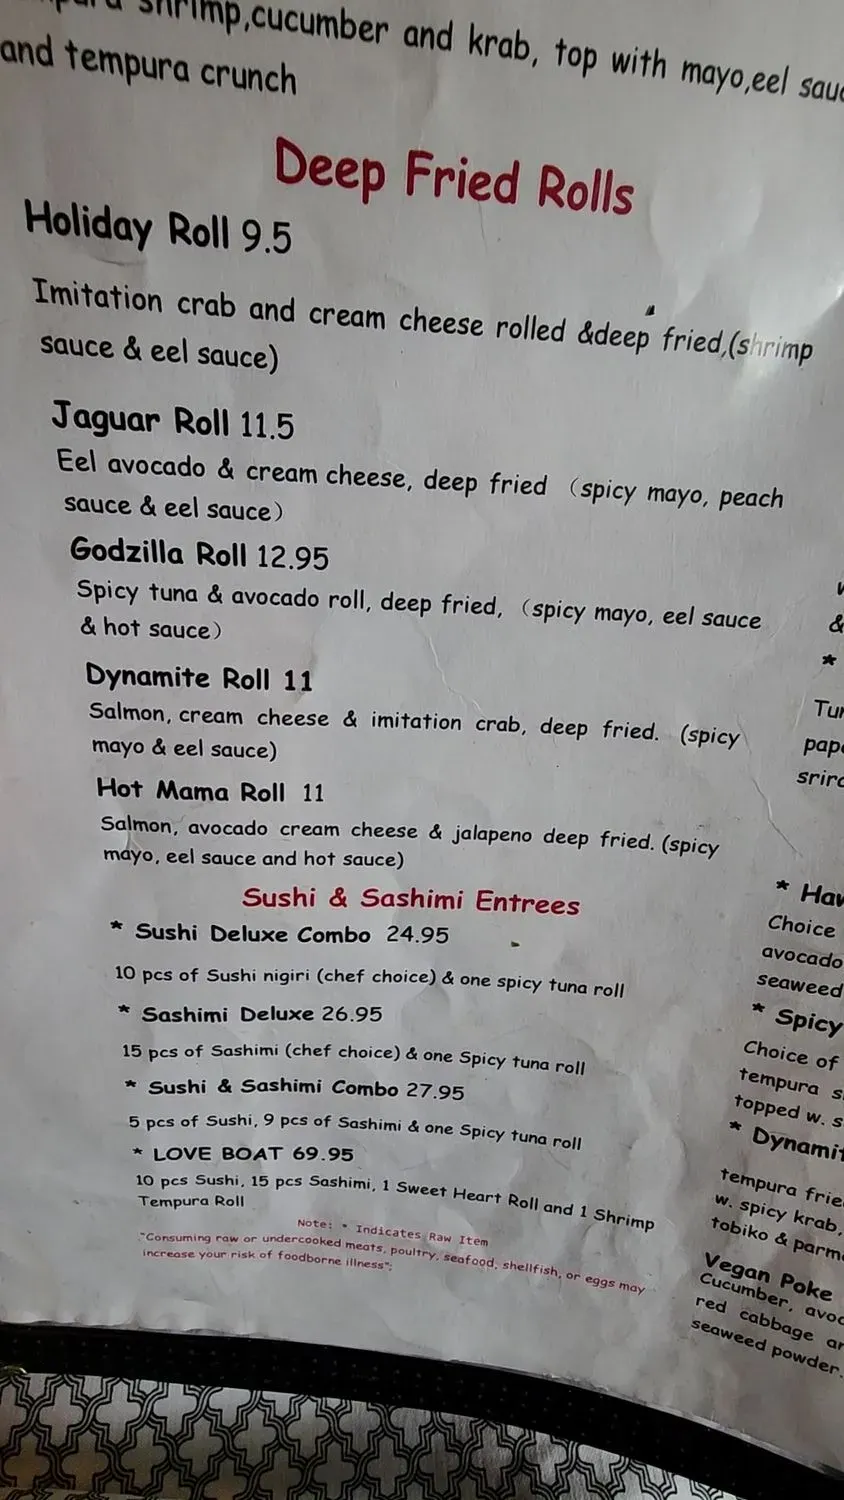 shrimp,cucumber and krab, top with mayo,eel
and tempura crunch
Deep Fried Rolls
Holiday Roll 9.5
Imitation crab and cream cheese rolled &deep fried,(shrimp
sauce & eel sauce)
Jaguar Roll 11.5
Eel avocado & cream cheese, deep fried （spicy mayo, peach
sauce & eel sauce）
Godzilla Roll 12.95
Spicy tuna & avocado roll, deep fried, （spicy mayo, eel sauce
& hot sauce）
Dynamite Roll 11
Salmon, cream cheese & imitation crab, deep fried. (spicy
mayo & eel sauce)
Hot Mama Roll 11
Salmon, avocado cream cheese & jalapeno deep fried. (spicy
mayo, eel sauce and hot sauce)
Sushi & Sashimi Entrees
* Sushi Deluxe Combo 24.95
10 pcs of Sushi nigiri (chef choice) & one spicy tuna roll
* Sashimi Deluxe 26.95
15 pcs of Sashimi (chef choice) & one Spicy tuna roll
* Sushi & Sashimi Combo 27.95
5 pcs of Sushi, 9 pcs of Sashimi & one Spicy tuna roll
* LOVE BOAT 69.95
10 pcs Sushi, 15 pcs Sashimi, 1 Sweet Heart Roll and 1 Shrimp
Tempura Roll
Note: * Indicates Raw Item
"Consuming raw or undercooked meats, poultry, seafood, shellfish, or eggs may
increase your risk of foodborne illness";
&
*
* 
Choice
avocado
seaweed
* Spicy
Choice of
tempura
topped w.
*
tempura
w. spicy krab,
tobiko &
Vegan Poke
Cucumber,
red cabbage
seaweed powder.